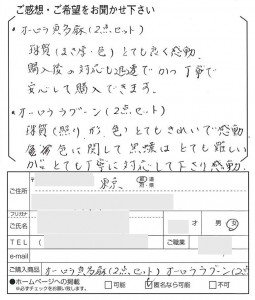 ご感想・ご希望をお聞かせ下さい
・オーロラ真多麻(2点セット)
珠質(まき厚・色)とても良く感動
購入後の対応も迅速でかつ丁寧で
安心して購入できます。
・オーロララグーン(2点セット)
珠質(照り、形、色)とてもきれいで感動
色に関して黒蝶はとても難しい
がとても丁寧に対応して下さり感動
ご住所
〒
東京
都道府県
フリガナ
ご氏名
才
男・女
TEL
ご職業
e-mail
ご購入商品
オーロラ真多麻(2点セット) オーロララグーン(2点
●ホームページへの掲載
※必ずチェックをお願い致します。
□可能 ☑匿名なら可能 □不可